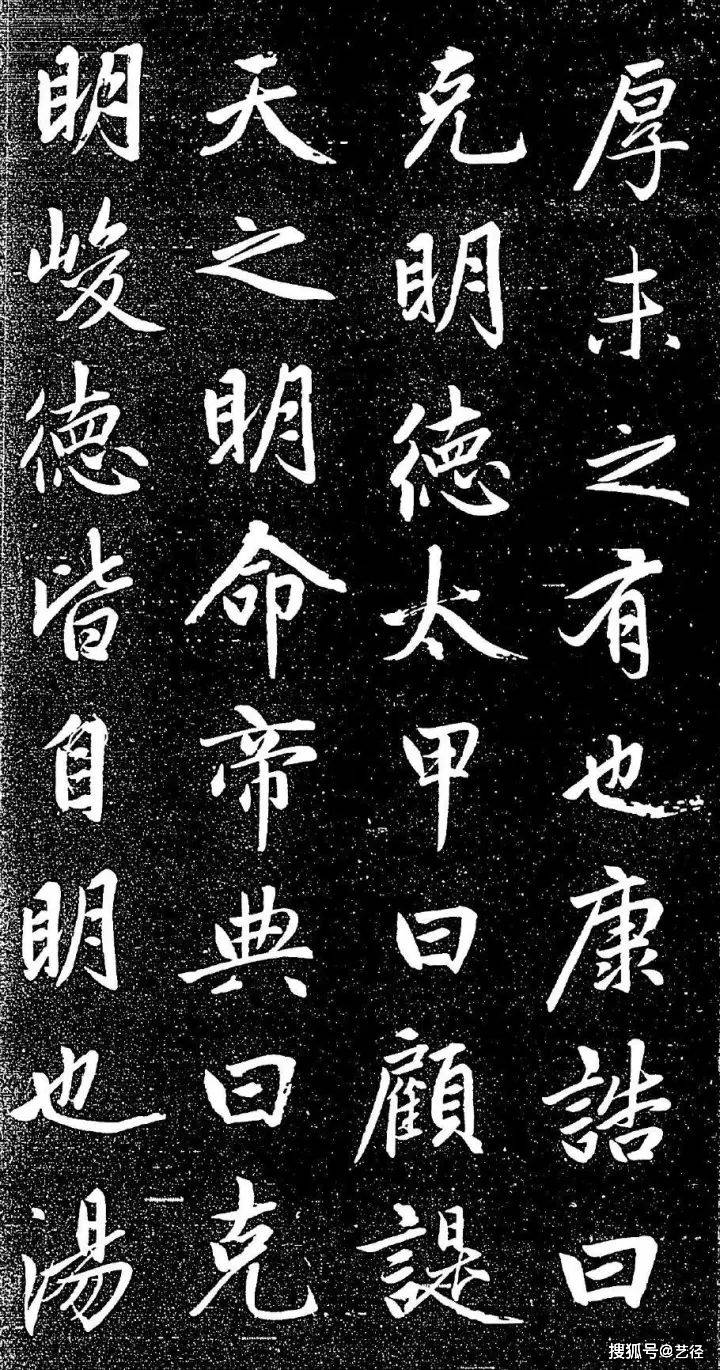 厚未之有也康誥曰
克明德太甲曰顧諟
天之明命帝典曰克
明峻德皆自明也湯
搜狐号@艺径